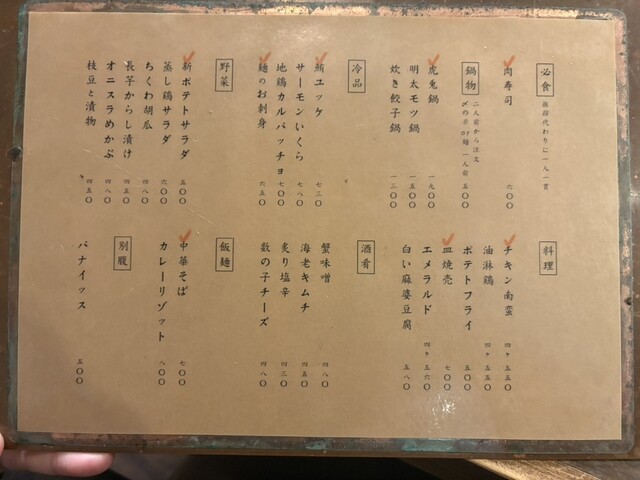 必食
挨拶代わりに一人一貫
肉寿司 六〇〇
鍋物
二人前から注文
〆の辛or麺 一人前 五〇〇
虎兎鍋 一九〇〇
明太モツ鍋 一五〇〇
炊き餃子鍋 一三〇〇
冷品
鮪ユッケ 七三〇
サーモンいくら 七八〇
地鶏カルパッチョ 七〇〇
麺のお刺身 六五〇
野菜
新ポテトサラダ 五〇〇
蒸し鶏サラダ 六〇〇
ちくわ胡瓜 四八〇
長芋からし漬け 四五〇
オニスラめかぶ 四八〇
枝豆と漬物 四五〇
料理
チキン南蛮 四ヶ 五五〇
油淋鶏 四ヶ 五五〇
ポテトフライ 五〇〇
皿焼売 七〇〇
エメラルド 四ヶ 五六〇
白い麻婆豆腐 五八〇
酒肴
蟹味噌 四八〇
海老キムチ 四五〇
炙り塩辛 四三〇
数の子チーズ 四八〇
飯麺
中華そば 七〇〇
カレーリゾット 八〇〇
別腹
バナイッス 五〇〇